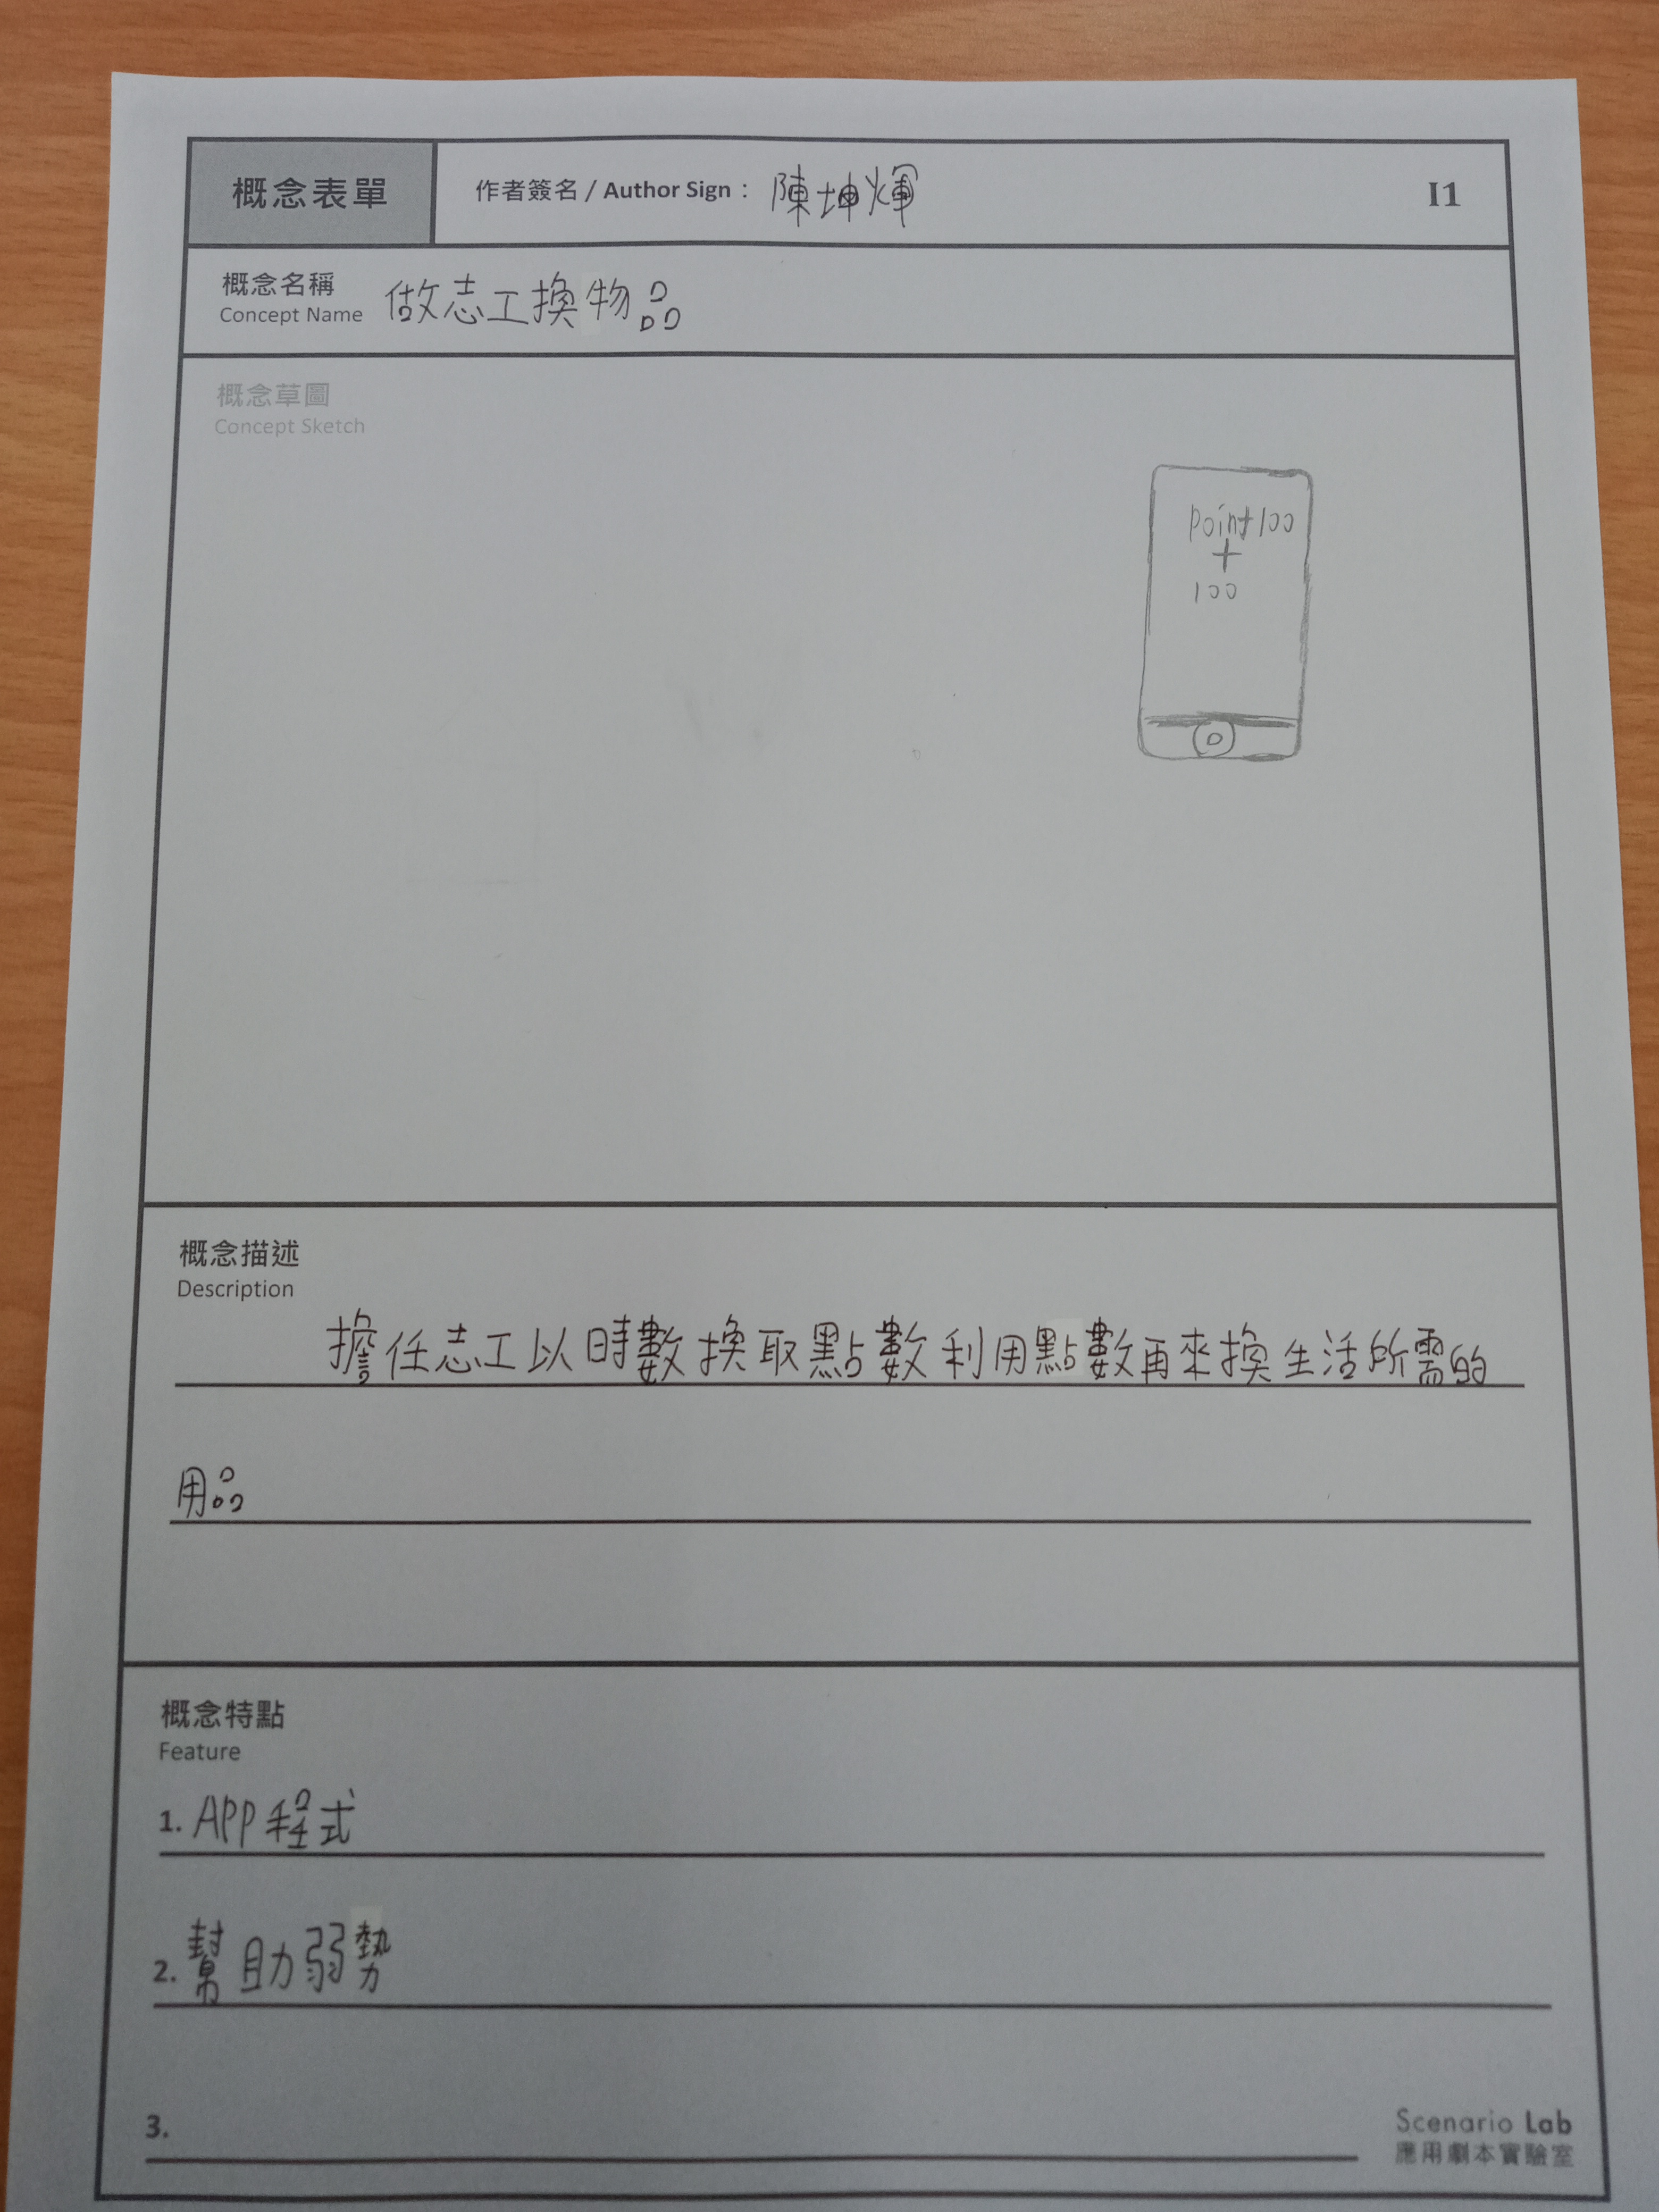 概念表單
作者簽名 / Author Sign： 陳坤輝
I1
概念名稱
Concept Name
做志工換物品
概念草圖
Concept Sketch
Point 100
+
100
概念描述
Description
擔任志工以時數換取點數利用點數再來換生活所需的
用品
概念特點
Feature
1. APP程式
2. 幫助弱勢
3.
Scenario Lab
應用劇本實驗室